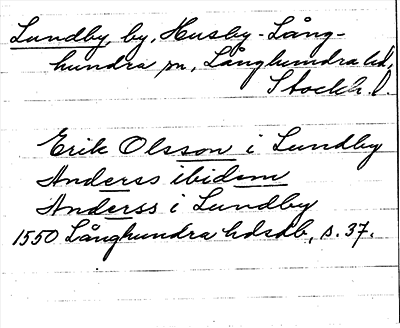 Lundby, by, Husby-Lång-
hundra sn, Långhundra hd,
Stockh. l.
Erik Olsson i Lundby
Anderss ibidem
Anderss i Lundby
1550 Långhundra hdsdb, s. 37.